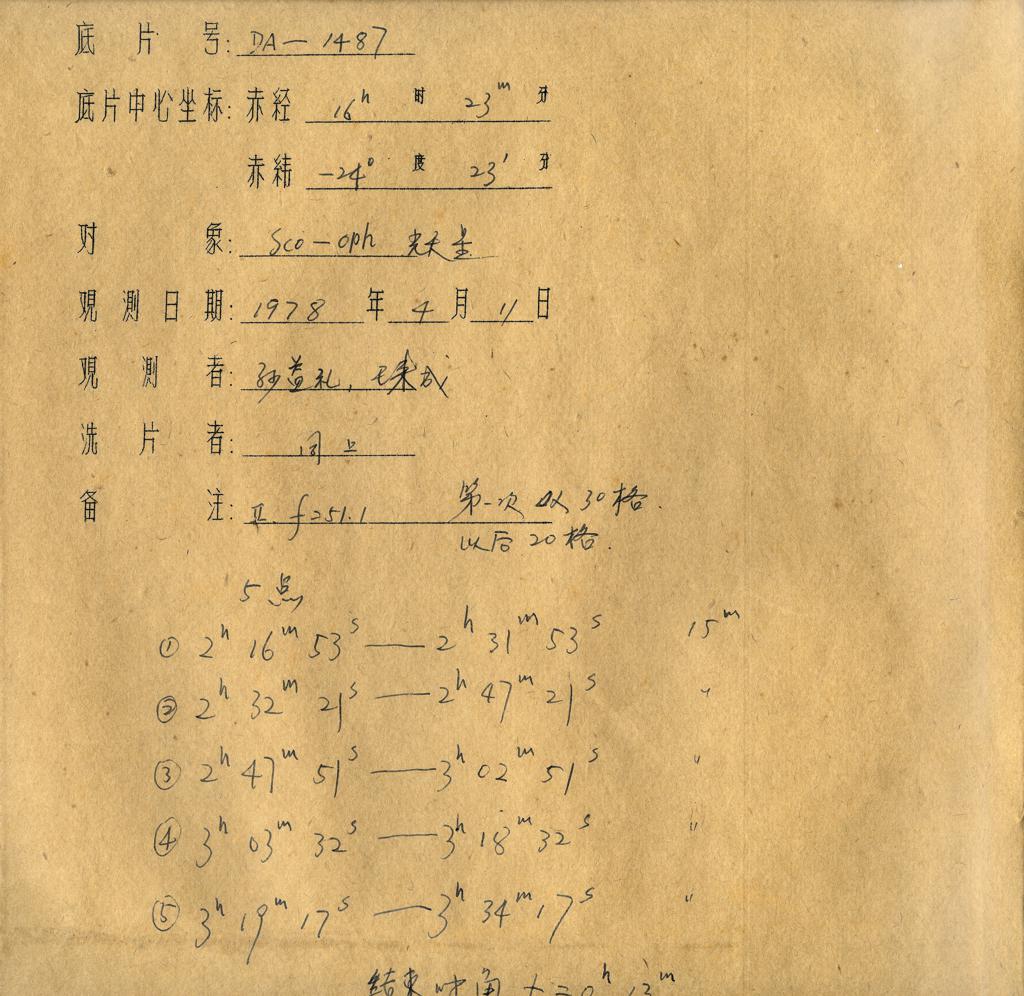 底片号: DA — 1487
底片中心坐标: 赤经 16ʰ 时 23ᵐ 分
赤纬 -24° 度 23′ 分
对象: Sco — oph 光天星
观测日期: 1978 年 4 月 11 日
观测者: 孙益礼,
洗片者: 同上
备注: II. f251.1 第一次 30格.
以后 20格.
5点
① 2ʰ 16ᵐ 53ˢ — 2ʰ 31ᵐ 53ˢ 15ᵐ
② 2ʰ 32ᵐ 21ˢ — 2ʰ 47ᵐ 21ˢ "
③ 2ʰ 47ᵐ 51ˢ — 3ʰ 02ᵐ 51ˢ "
④ 3ʰ 03ᵐ 32ˢ — 3ʰ 18ᵐ 32ˢ "
⑤ 3ʰ 19ᵐ 17ˢ — 3ʰ 34ᵐ 17ˢ "
结束时角 t = 0ʰ 13ᵐ